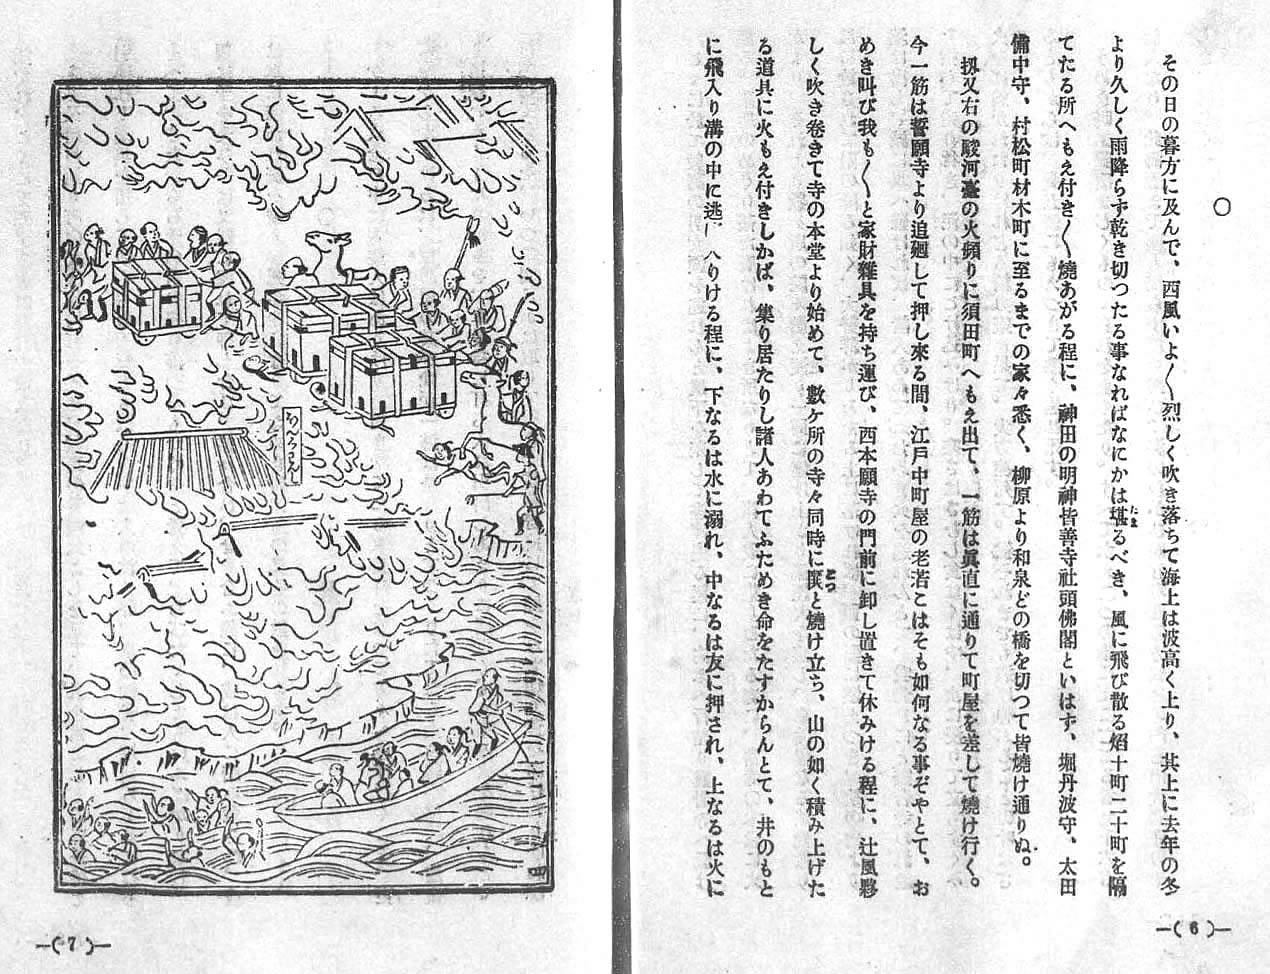 ○
その日の暮方に及んで、西風いよ〳〵烈しく吹き落ちて海上は波高く上り、其上に去年の冬
より久しく雨降らず乾き切つたる事なればなにかは堪るべき、風に飛び散る焰十町二十町を隔
たま
てたる所へもえ付き〳〵燒あがる程に、神田の明神皆善寺社頭佛閣といはず、堀丹波守、太田
備中守、村松町材木町に至るまでの家々悉く、柳原より和泉どの橋を切つて皆燒け通りぬ。
扨又右の駿河臺の火頻りに須田町へもえ出て、一筋は眞直に通りて町屋を差して燒け行く。
今一筋は誓願寺より追廻して押し來る間、江戶中町屋の老若こはそも如何なる事ぞやとて、お
めき叫び我も〳〵と家財雜具を持ち運び、西本願寺の門前に卸し置きて休みける程に、辻風夥
しく吹き卷きて寺の本堂より始めて、數ケ所の寺々同時に撲と燒け立ち、山の如く積み上げた
どつ
る道具に火もえ付きしかば、集り居たりし諸人あわてふためき命をたすからんとて、井のもと
に飛入り溝の中に逃 入りける程に、下なるは水に溺れ、中なるは友に押され、上なるは火に
—( 6 )—
四
—( 7 )—